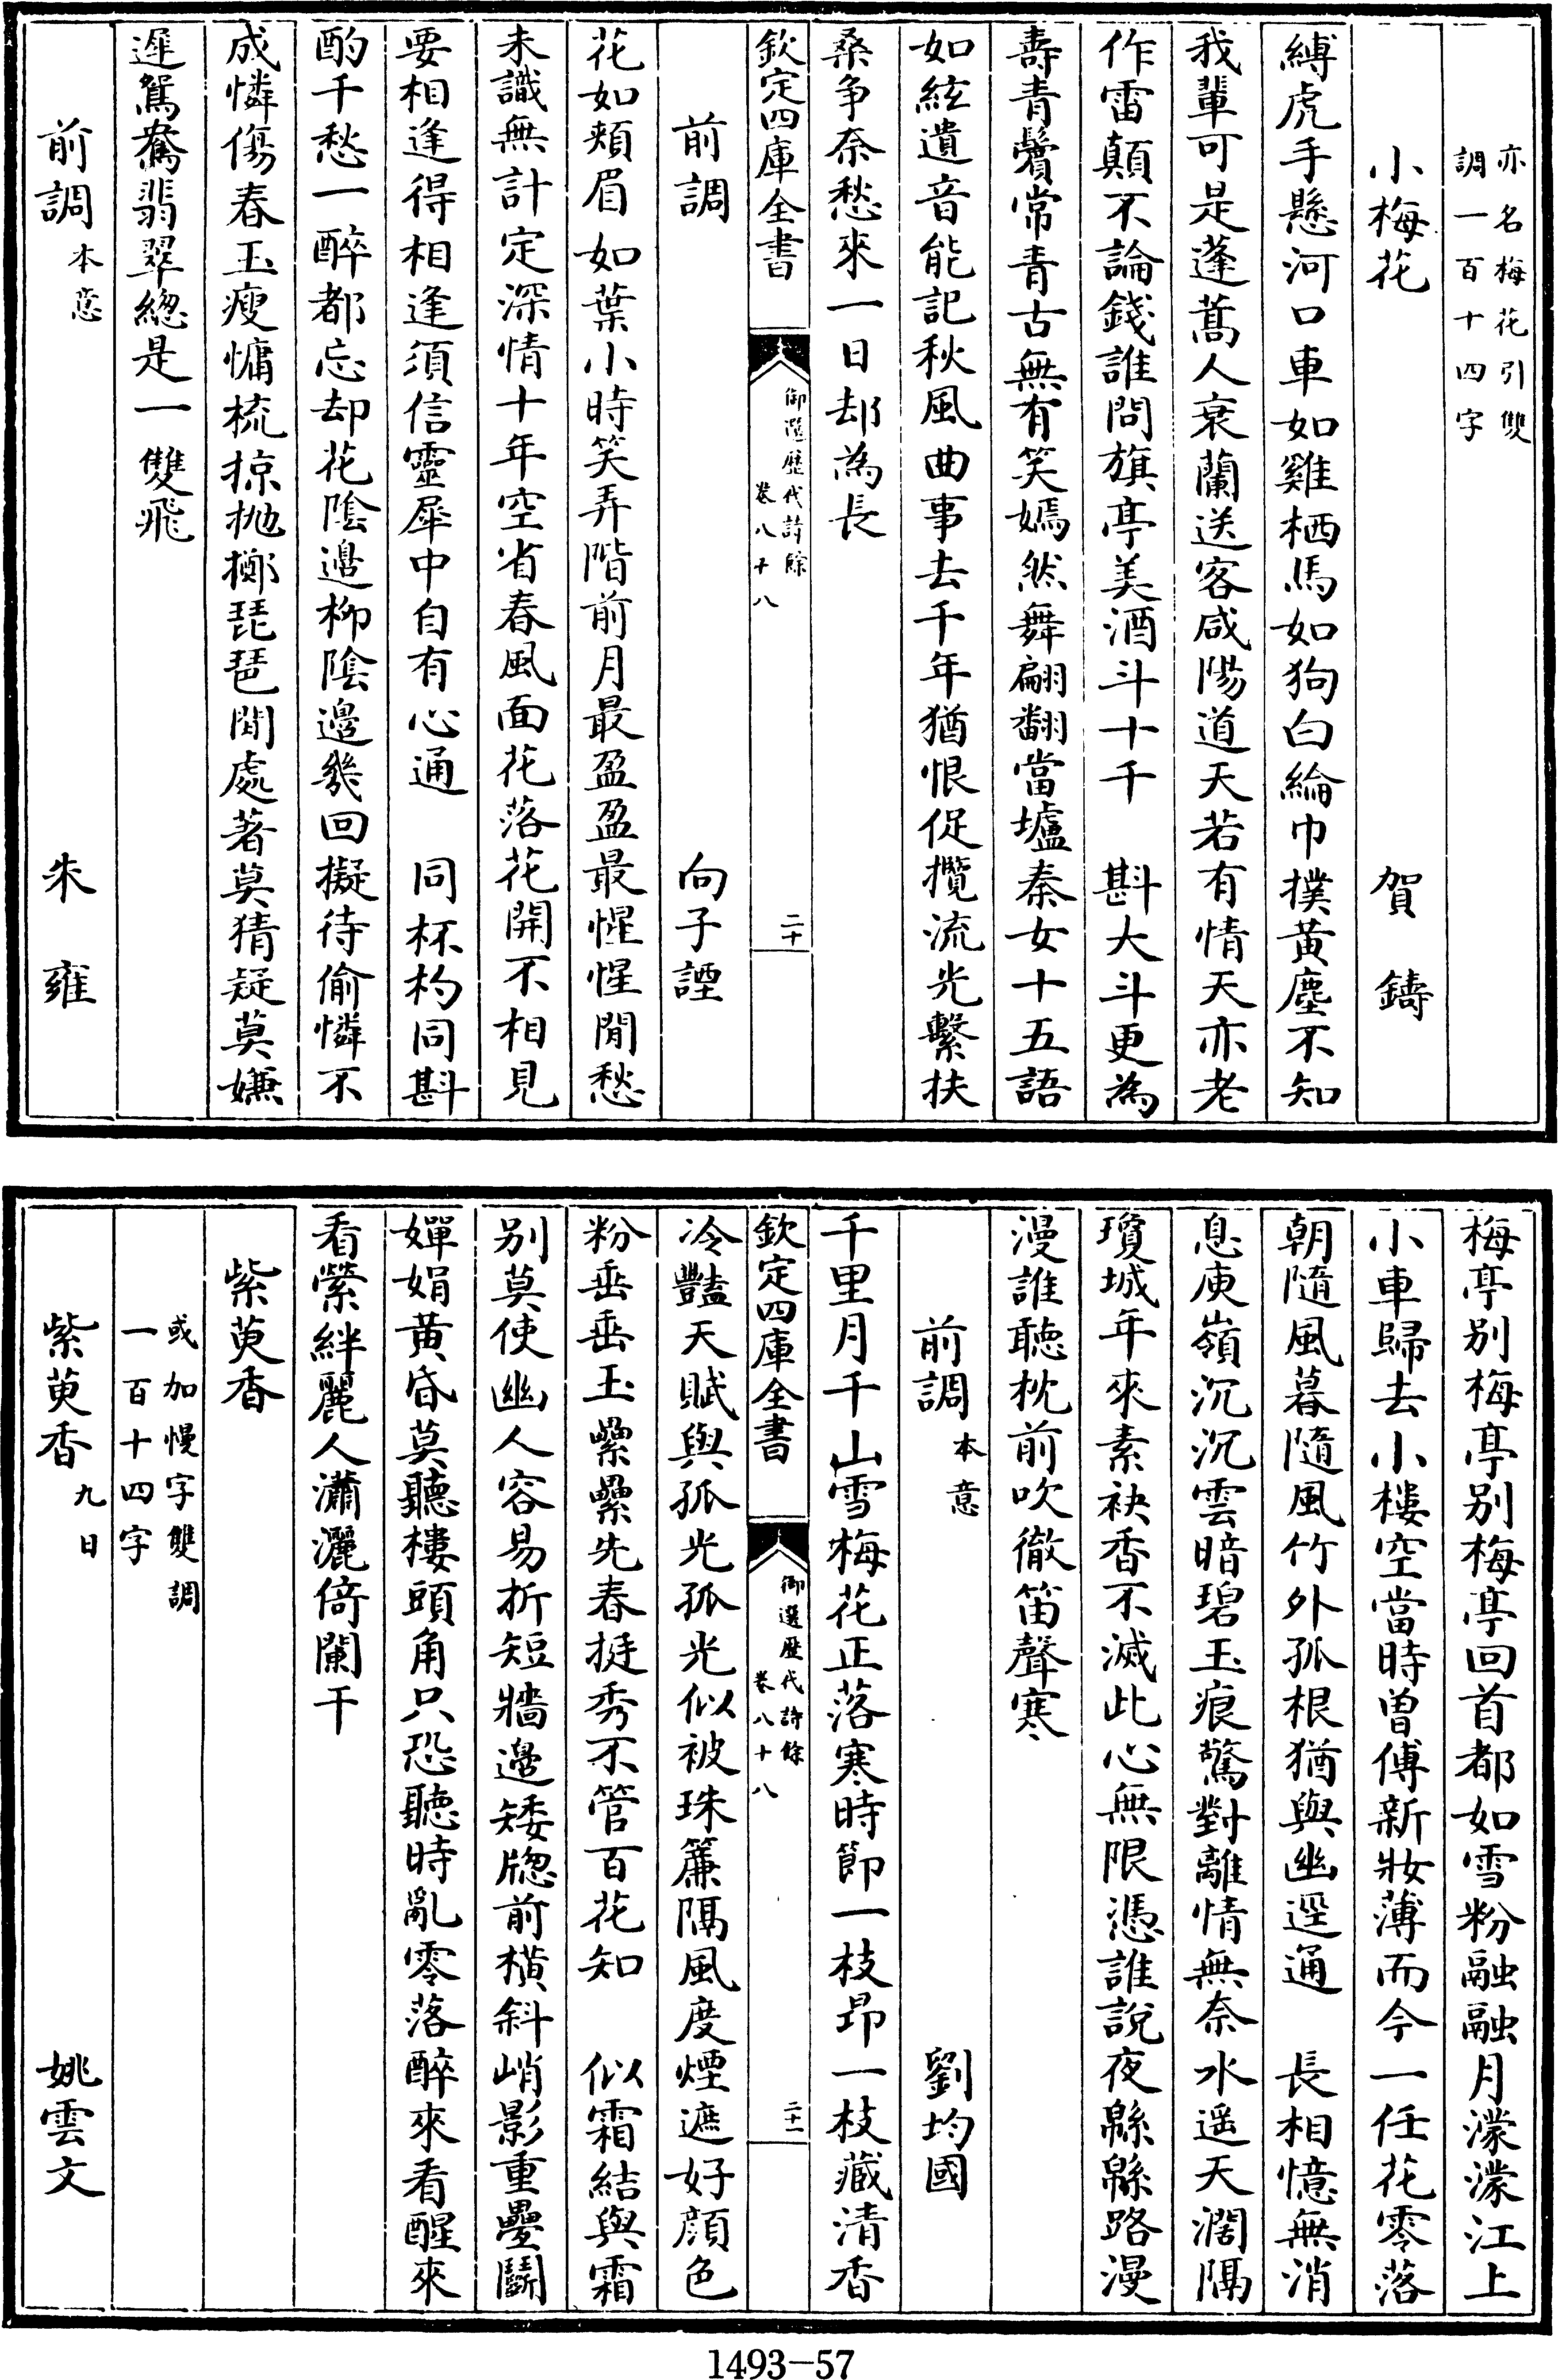 亦名梅花引雙
調一百十四字
小梅花　賀鑄
縛虎手懸河口車如雞栖馬如狗白綸巾撲黃塵不知
我輩可是蓬蒿人衰蘭送客咸陽道天若有情天亦老
作雷顛不論錢誰問旗亭美酒斗十千　斟大斗更為
壽青鬢常青古無有笑嫣然舞翩翻當壚秦女十五語
如絃遺音能記秋風曲事去千年猶恨促攬流光繫扶
桑爭奈愁來一日却為長
欽定四庫全書　御選歷代詩餘　卷八十八　二十
前調　向子諲
花如頰眉如葉小時笑弄階前月最盈盈最惺惺閒愁
未識無計定深情十年空省春風面花落花開不相見
要相逢得相逢須信靈犀中自有心通　同杯杓同斟
酌千愁一醉都忘却花陰邊柳陰邊幾回擬待偷憐不
成憐傷春玉瘦慵梳掠拋擲琵琶閒處著莫猜疑莫嫌
遲鴛鴦翡翠總是一雙飛
前調　本意　朱雍
梅亭别梅亭别梅亭回首都如雪粉融融月濛濛江上
小車歸去小樓空當時曾傅新妝薄而今一任花零落
朝隨風暮隨風竹外孤根猶與幽逕通　長相憶無消
息庾嶺沉沉雲暗碧玉痕驚對離情無奈水遥天濶隔
瓊城年來素袂香不滅此心無限憑誰說夜緜緜路漫
漫誰聽枕前吹徹笛聲寒
前調　本意　劉均國
千里月千山雪梅花正落寒時節一枝昂一枝藏清香
冷豔天賦與孤光孤光似被珠簾隔風度煙遮好顔色
粉垂垂玉纍纍先春挺秀不管百花知　似霜結與霜
别莫使幽人容易折短牆邊矮牕前横斜峭影重疊鬭
嬋娟黃昏莫聽樓頭角只恐聽時亂零落醉來看醒來
看縈絆麗人瀟灑倚闌干
欽定四庫全書　御選歷代詩餘　卷八十八　二十一
紫萸香
或加慢字雙調
一百十四字
紫萸香　九日　姚雲文
1493－57